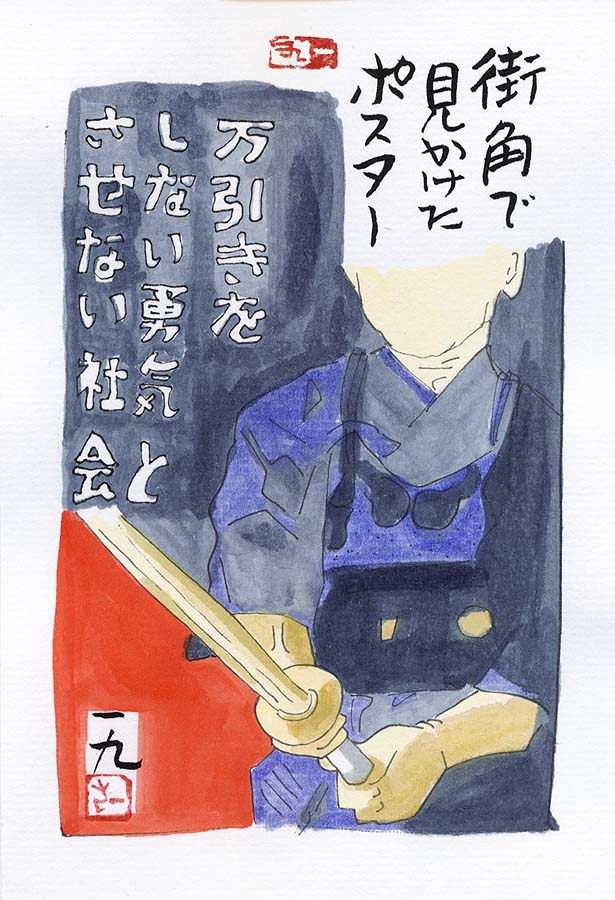 街角で
見かけた
ポスター
万引きを
しない勇気と
させない社会
一九